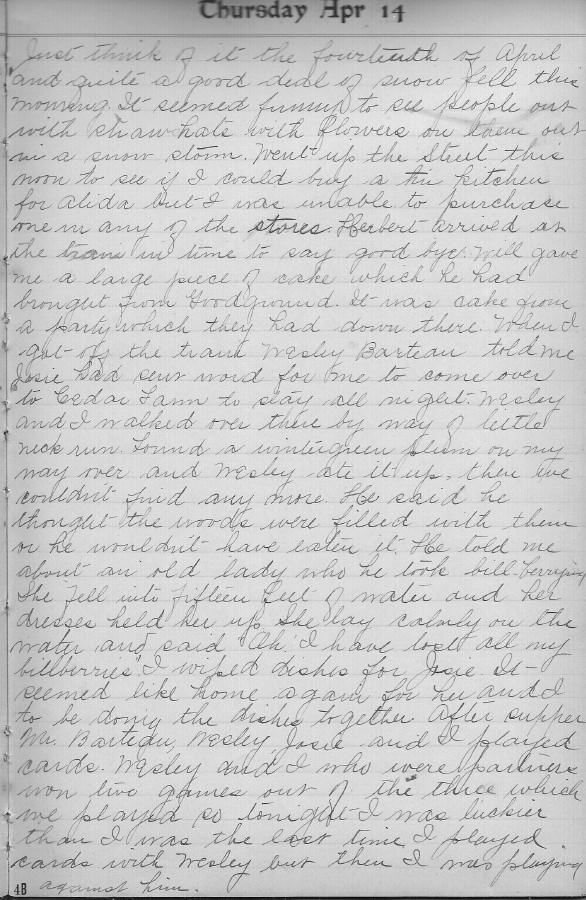 Thursday Apr 14
Just think of it the fourteenth of April
and quite a good deal of snow fell this
morning. It seemed funny to see people out
with straw hats with flowers on them out
in a snow storm. Went up the Street this
noon to see if I could buy a tin kitchen
for Alida but I was unable to purchase
one in any of the stores. Herbert arrived at
the train in time to say good bye. Will gave
me a large piece of cake which he had
brought from Goodground. It was cake from
a party which they had down there. When I
got off the train Wesley Barteau told me
Josie had sent word for me to come over
to Cedar Farm to stay all night. Wesley
and I walked over there by way of little
neck run. Found a wintergreen plum on my
way over and Wesley ate it up, then we
couldn't find any more. He said he
thought the woods were filled with them
or he wouldn't have eaten it. He told me
about an old lady who he took bill-berrying
She fell into fifteen feet of water and her
dresses held her up. She lay calmly on the
water and said "Ah, I have lost all my
billberries." I wiped dishes for Josie. It
seemed like home again for her and I
to be doing the dishes together. After supper
Mr. Barteau, Wesley, Josie and I played
cards. Wesley and I who were partners
won two games out of the three which
we played so tonight I was luckier
than I was the last time I played
cards with Wesley but then I was playing
against him.
4B